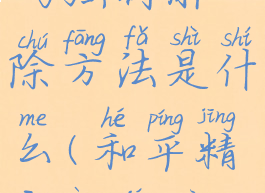 chú fāng fǎ shì shí
除方法是什
me hé píng jīng
么(和平精